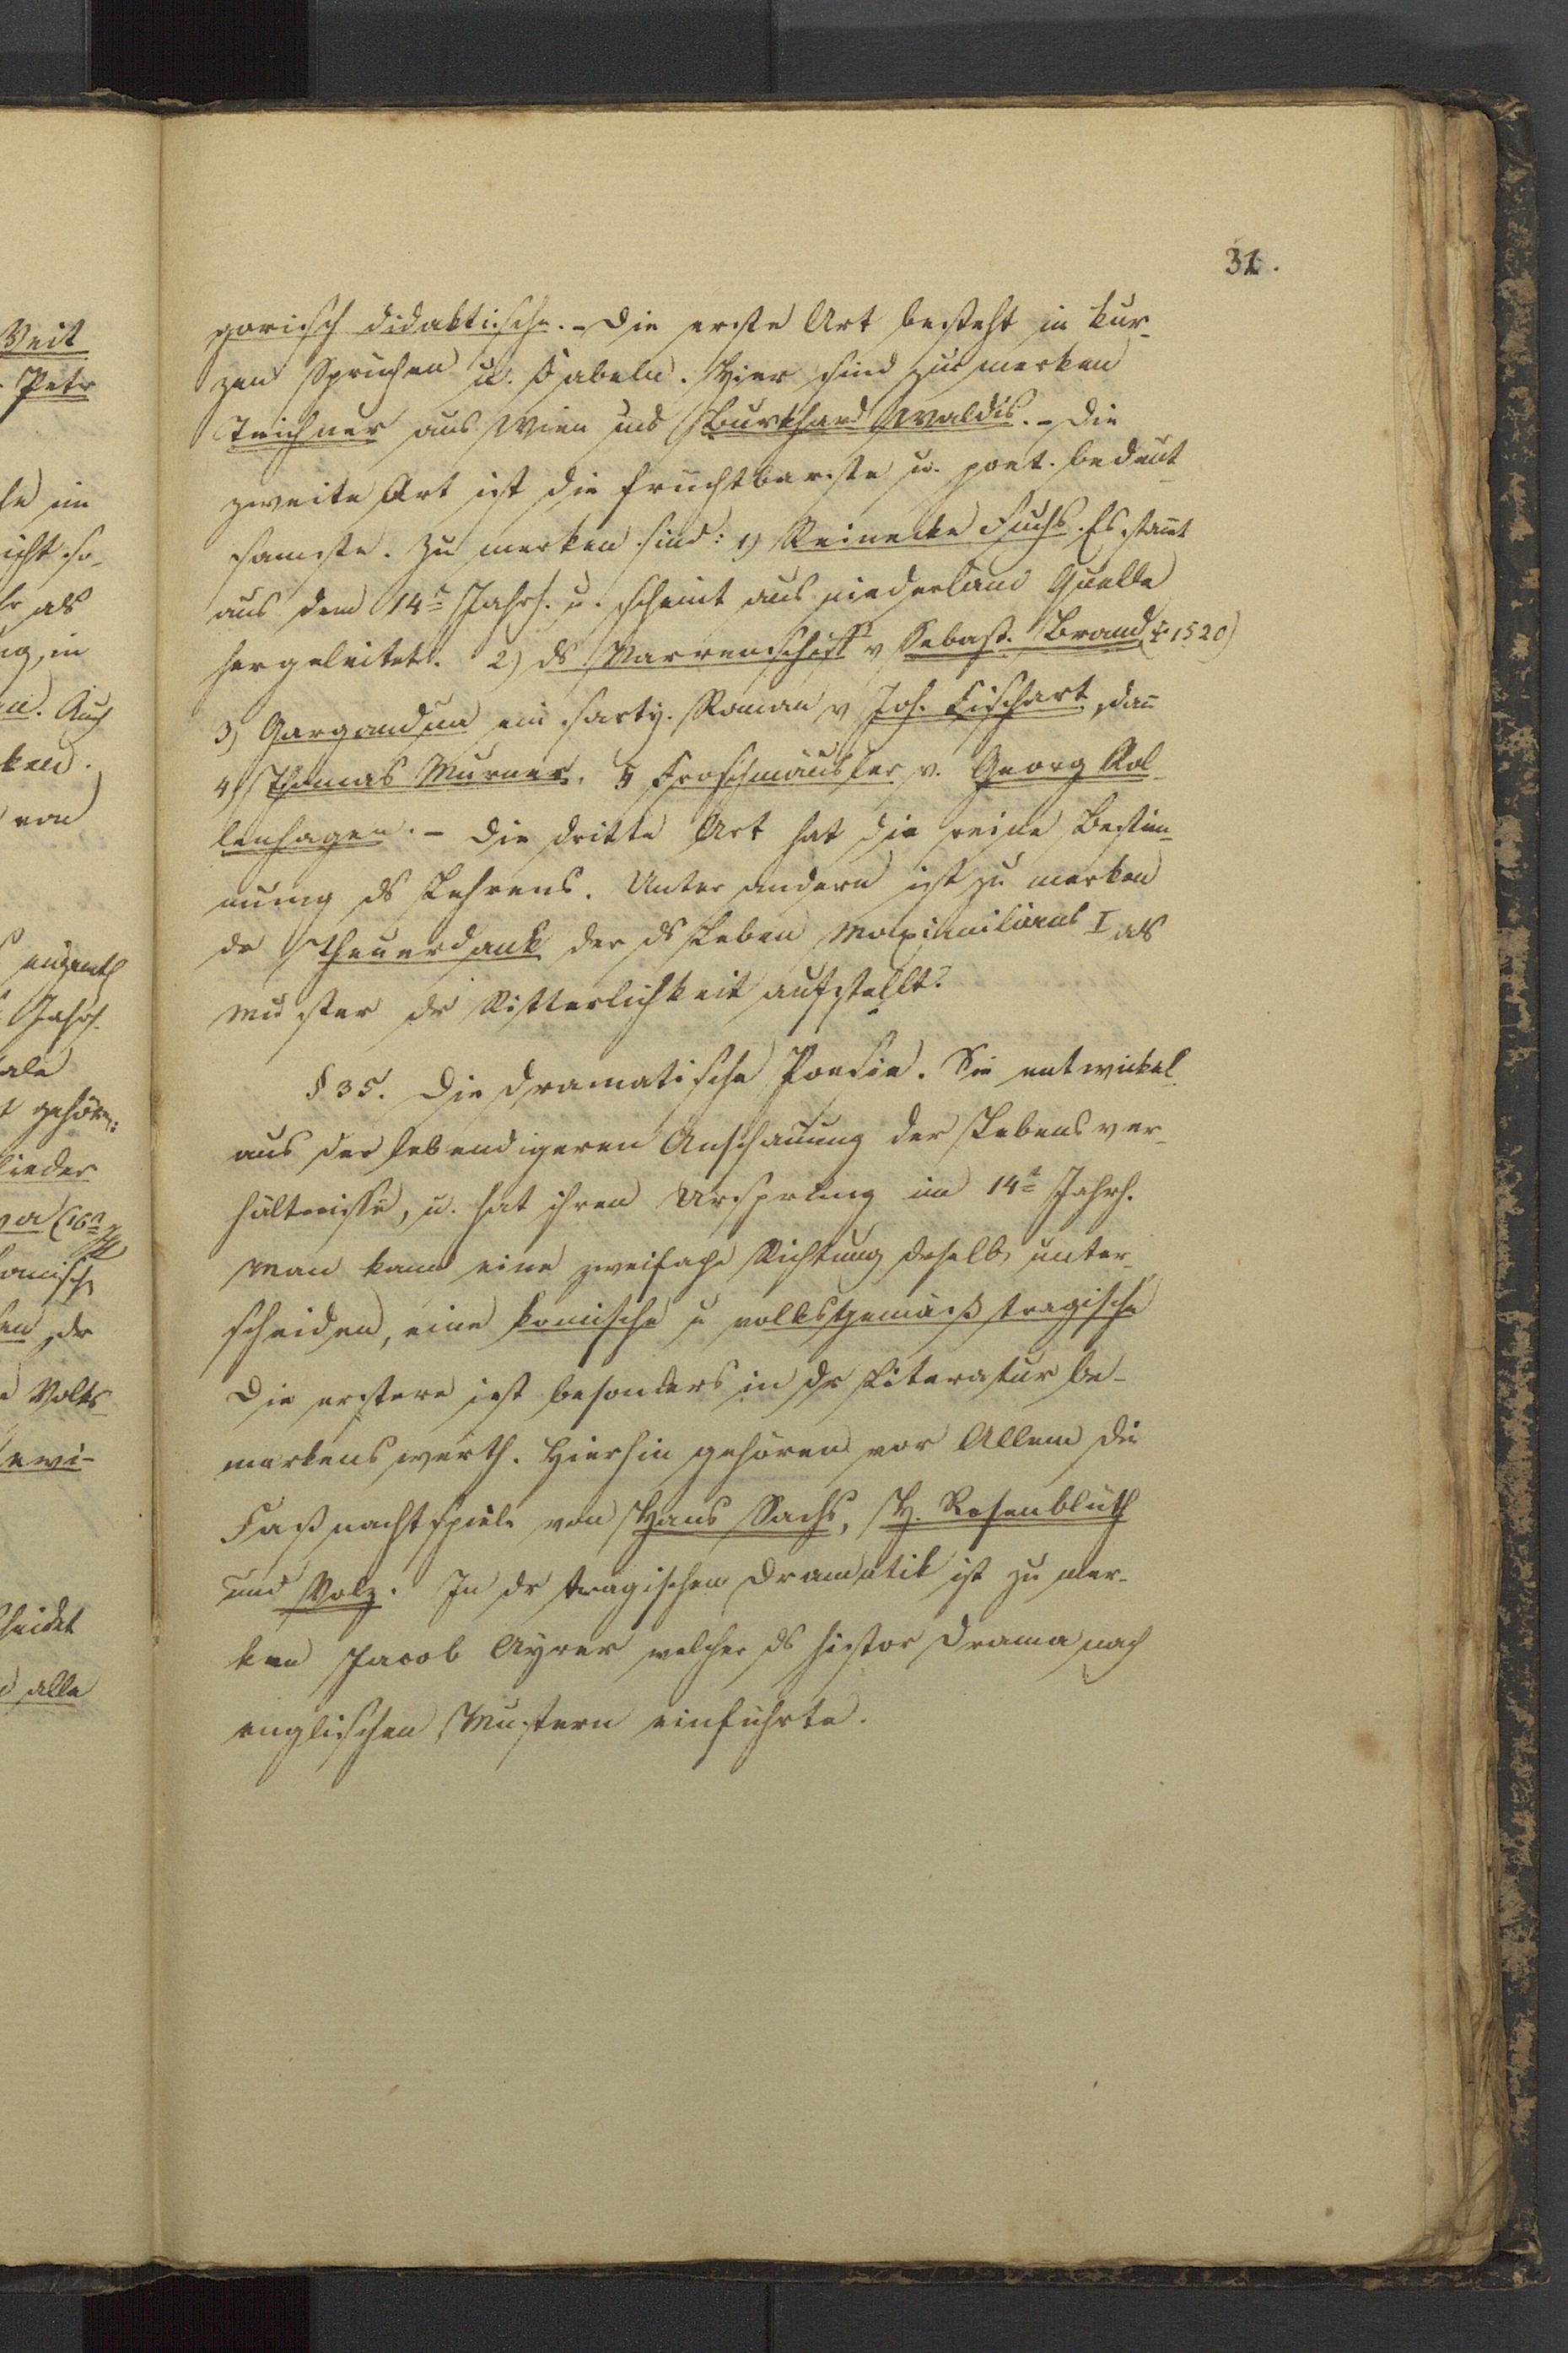 31.
gorisch didaktische. - Die erste Art besteht in kur-
zen Sprüchen u. Fabeln. Hier sind zu merken
Teichner aus Wien und Burkhard Waldis. - Die
zweite Art ist die fruchtbarste u. poet. bedeut-
samste. Zu merken sind: 1) Reinecke Fuchs. Es stamt
aus dem 14t Jahrh. u. scheint aus niederländ Quelle
hergeleitet. 2) ds Narrenschiff v Sebast. Brand († 1520)
3) Gargandua ein satyr. Roman v Joh. Fischart, dan
4) Thomas Murner. 5 Froschmäusler v. Georg Rol-
lenhagen. - Die dritte Art hat die reine Bestim-
mung ds Lehrens. Unter andern ist zu merken
dr Theuerdank der ds Leben Maximilians I als
Muster dr Ritterlichkeit aufstellt.
§ 35. Die dramatische Poesie. Sie entwickel
aus der lebendigeren Anschauung der Lebensver-
hältnisse, u. hat ihren Ursprung im 14t Jahrh.
Man kann eine zweifache Richtung deselb. unter-
scheiden, eine komische u volksgemäß tragische
Die erstere ist besonders in dr Literatur be-
merkenswerth. Hierhin gehören vor Allem die
Faßnachtspiele von Hans Sachs, H. Rosenblüth
und Volz. In dr tragischen Dramatik ist zu mer-
ken Jacob Ayrer welcher ds histor Drama nach
englischen Mustern einführte.
Veit
Petr
im
als
in
Auch
ken.
von
eigentl
Jahrh.
gehören:
lieder
(16t
dr
Volks-
ewi-
alle